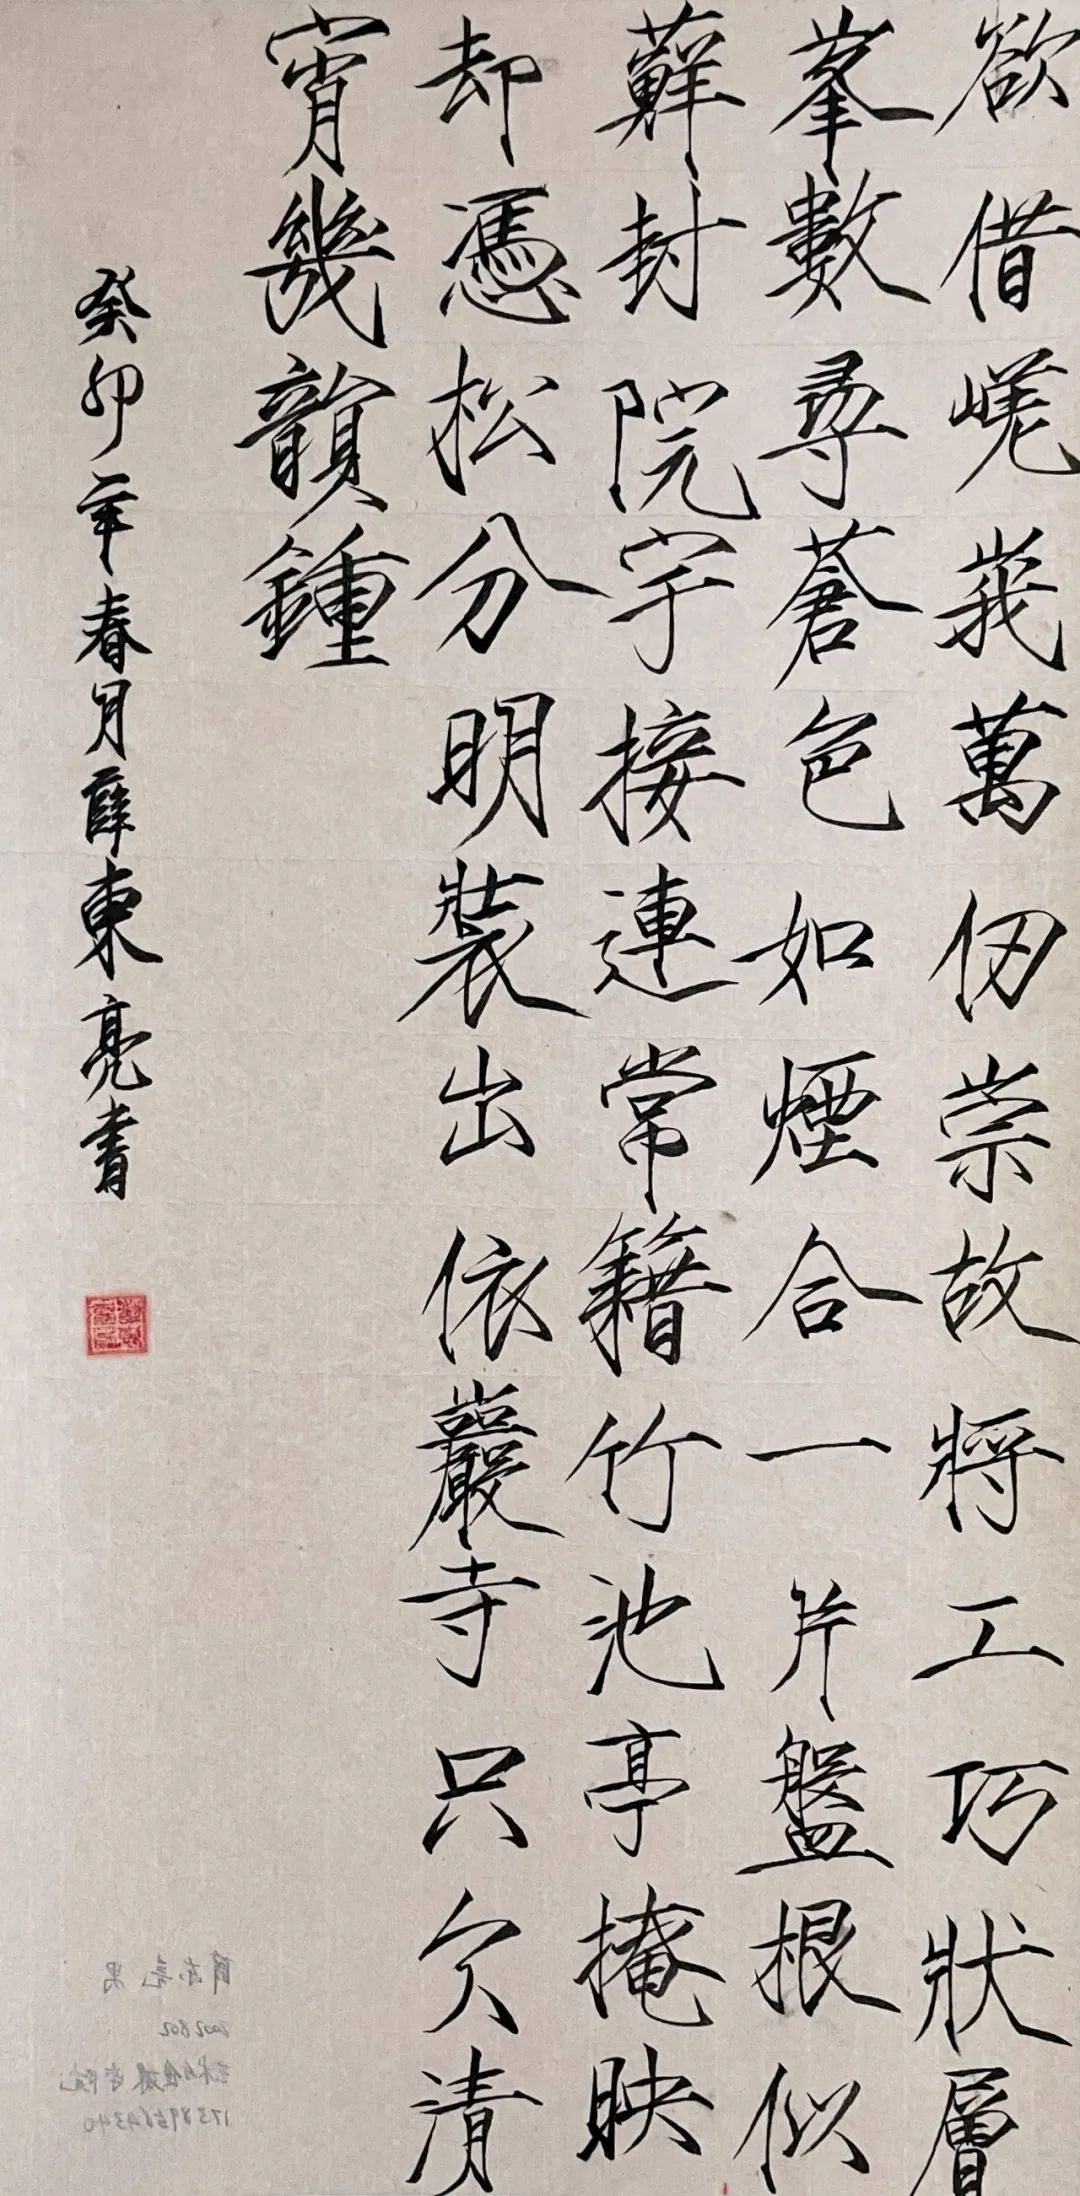 欲借嵯峩萬仞崇故將工巧狀層
峯數尋蒼色如煙合一片盤根似
蘚封院宇接連常籍竹池亭掩映
却憑松分明裝出依巖寺只欠清
宵幾韻鍾
癸卯年春月薛東亮書